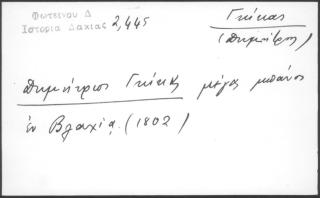 Φωτεινου Δ
Ιστορια Δακιας 2,445
Γκίκας
(Δημήτριος)
Δημήτριος Γκίκας μέγας μπάνος
ἐν Βλαχίᾳ. (1802)